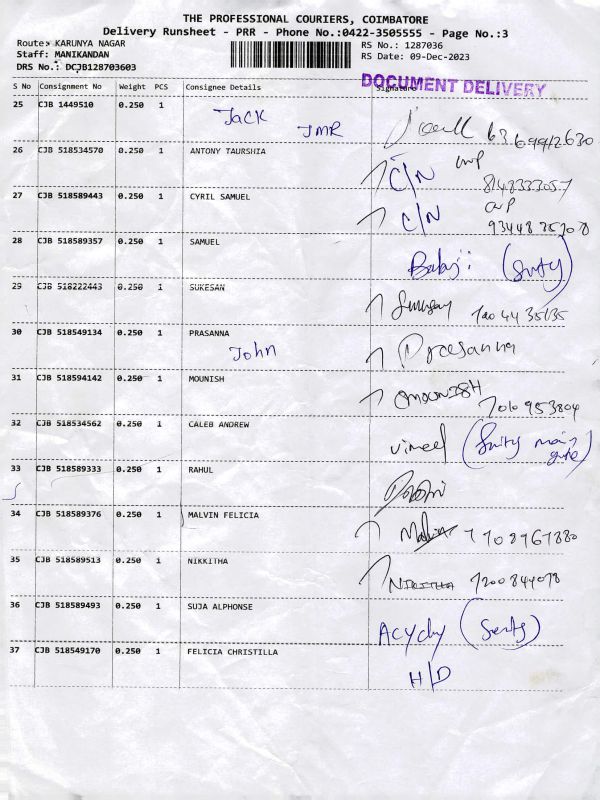 THE PROFESSIONAL COURIERS, COIMBATORE
Delivery Runsheet - PRR - Phone No.:0422-3505555 - Page No.:3
Route: KARUNYA NAGAR
RS No.: 1287036
Staff: MANIKANDAN
RS Date: 09-Dec-2023
DRS No.: DCJB128703603
DOCUMENT DELIVERY
S No Consignment No Weight PCS Consignee Details Signature
25 CJB 1449510 0.250 1
Jack JMR
26 CJB 518534570 0.250 1 ANTONY TAURSHIA
C/N 8148333057
27 CJB 518589443 0.250 1 CYRIL SAMUEL
C/N
28 CJB 518589357 0.250 1 SAMUEL
29 CJB 518222443 0.250 1 SUKESAN
30 CJB 518549134 0.250 1 PRASANNA
John Prasanna
31 CJB 518594142 0.250 1 MOUNISH
MOUNISH 7010 953804
32 CJB 518534562 0.250 1 CALEB ANDREW
33 CJB 518589333 0.250 1 RAHUL
34 CJB 518589376 0.250 1 MALVIN FELICIA
35 CJB 518589513 0.250 1 NIKKITHA
36 CJB 518589493 0.250 1 SUJA ALPHONSE
37 CJB 518549170 0.250 1 FELICIA CHRISTILLA
H/D